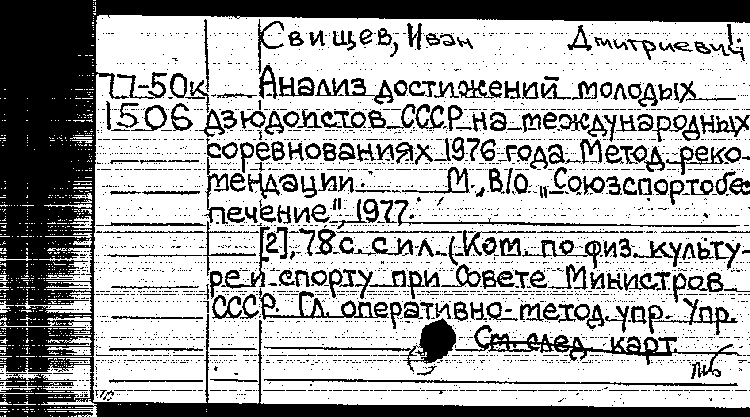 Свищев, Иван Дмитриевич
77-50к Анализ достижений молодых
1506 дзюдоистов СССР на международных
соревнованиях 1976 года. Метод. реко-
мендации. М., В/О „Союзспортобес
печение", 1977.
[2], 78 с. с ил. (Ком. по физ. культу-
ре и спорту при Совете Министров
СССР. Гл. оперативно-метод. упр. Упр.
См. след. карт.